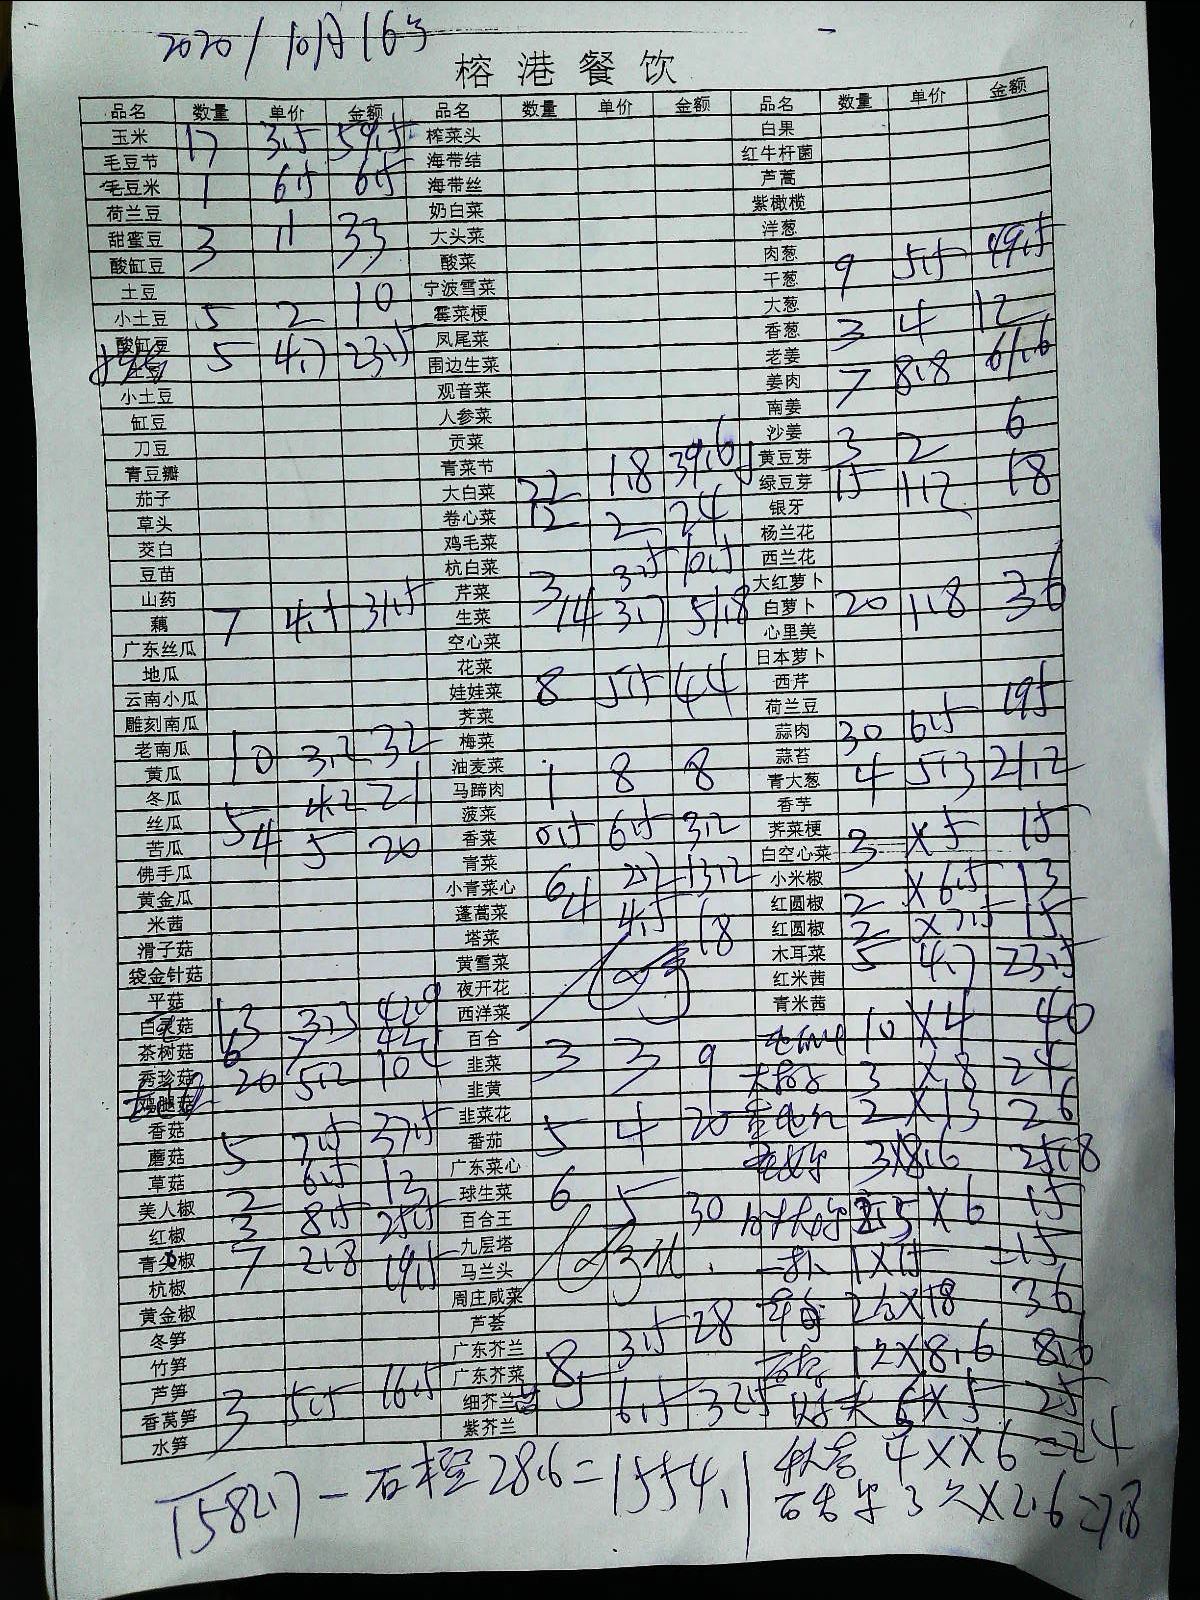 2020/10月16号
榕港餐饮
品名 数量 单价 金额 品名 数量 单价 金额 品名 数量 单价 金额
玉米 17 3.5 59.5 榨菜头 白果
毛豆节 海带结 红牛杆菌
毛豆米 1 6.5 6.5 海带丝 芦蒿
荷兰豆 奶白菜 紫橄榄
甜蜜豆 3 11 33 大头菜 洋葱
酸缸豆 酸菜 肉葱 9 5.5 49.5
土豆 宁波雪菜 干葱
小土豆 5 2 10 霉菜梗 大葱
酸缸豆 5 4.7 23.5 凤尾菜 香葱 3 4 12
土豆 围边生菜 老姜
小土豆 观音菜 姜肉 7 8.8 61.6
缸豆 人参菜 南姜
刀豆 贡菜 沙姜 3 2 6
青豆瓣 青菜节 黄豆芽
茄子 大白菜 22 1.8 39.6 绿豆芽 15 1.2 18
草头 卷心菜 12 2 24 银牙
茭白 鸡毛菜 杨兰花
豆苗 杭白菜 西兰花
山药 芹菜 3 3.5 10.5 大红萝卜
藕 7 4.5 31.5 生菜 14 3.7 51.8 白萝卜 20 1.8 36
广东丝瓜 空心菜 心里美
地瓜 花菜 日本萝卜
云南小瓜 娃娃菜 8 5.5 44 西芹
雕刻南瓜 荠菜 荷兰豆
老南瓜 梅菜 蒜肉 30 6.5 195
黄瓜 10 3.2 32 油麦菜 蒜苔
冬瓜 马蹄肉 1 8 8 青大葱 4 5.3 21.2
丝瓜 5 4.2 21 菠菜 香芋
苦瓜 4 5 20 香菜 0.5 6.5 3.2 荠菜梗
佛手瓜 青菜 白空心菜 3 ×5 15
黄金瓜 小青菜心 6 2.2 13.2 小米椒
米茜 蓬蒿菜 4 4.5 18 红圆椒 2 ×6.5 13
滑子菇 塔菜 红圆椒 2 ×7.5 15
袋金针菇 黄雪菜 木耳菜 5 4.7 23.5
平菇 夜开花 红米茜
白灵菇 13 3.3 42.9 西洋菜 青米茜
茶树菇 6 7 42 百合 10×4 40
秀珍菇 20 5.2 104 韭菜 3 3 9
鸡腿菇 韭黄 3 ×8 24
香菇 韭菜花 2×13 26
蘑菇 5 7.5 37.5 番茄 5 4 20
草菇 广东菜心 3×8.6 25.8
美人椒 2 6.5 13 球生菜 6 5 30
红椒 3 8.5 25.5 百合王 2.5×6 15
青尖椒 7 2.8 19.5 九层塔
杭椒 马兰头 1×15 =15
黄金椒 周庄咸菜
冬笋 芦荟 2×18 36
竹笋 广东芥兰 8 3.5 28
芦笋 广东芥菜 8.6
香莴笋 3 5.5 16.5 细芥兰 5 6.5 32.5 ×5 25
水笋 紫芥兰
1582.7-石橙28.6=1554.1
4××6=24
3×2.6=7.8